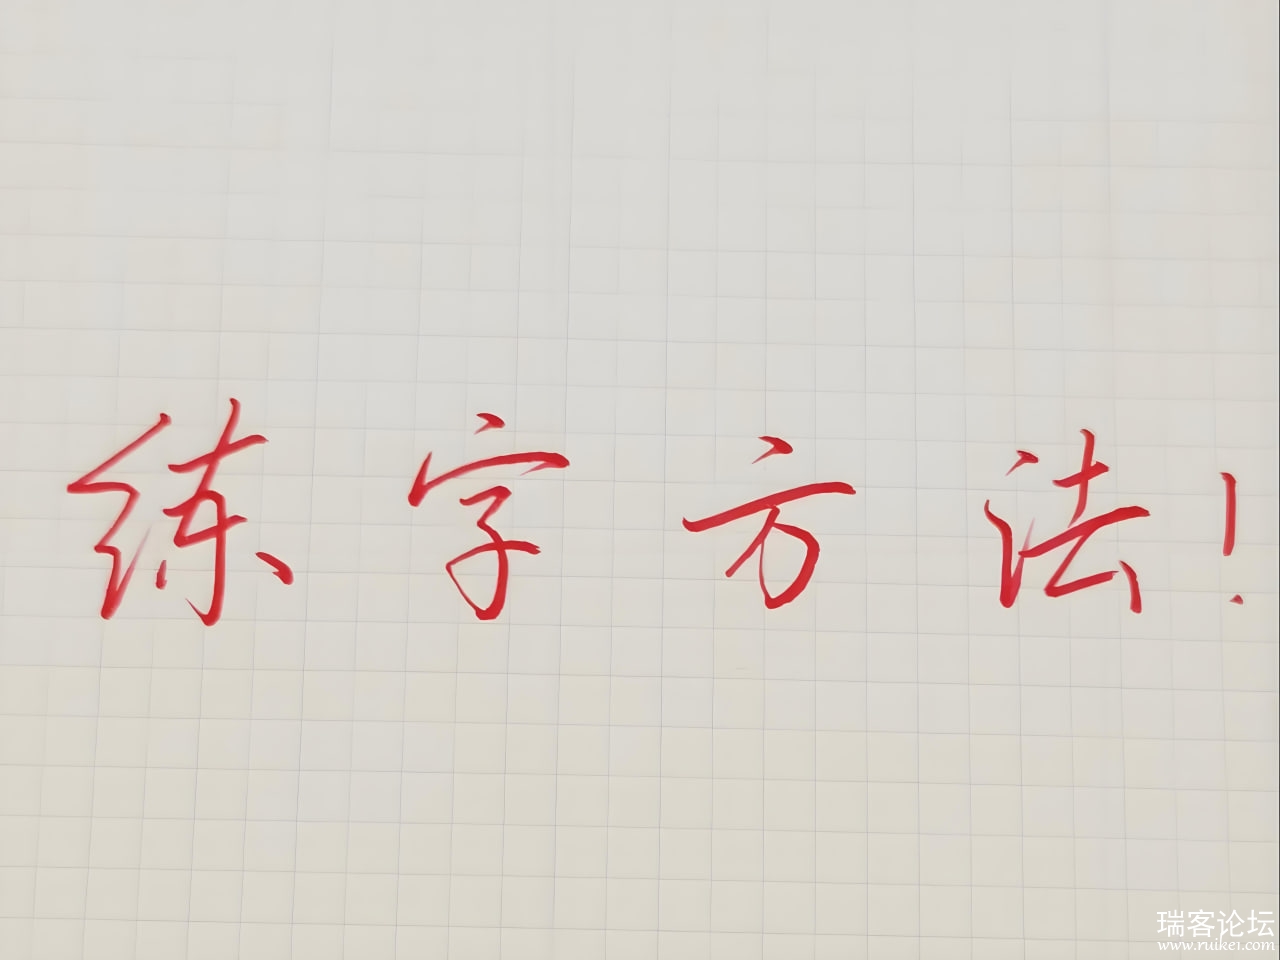 练字方法!
瑞客论坛
www.ruikei.com